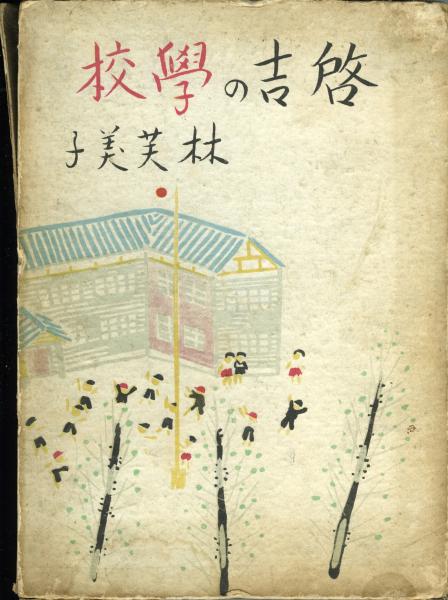 啓吉の學校
林芙美子